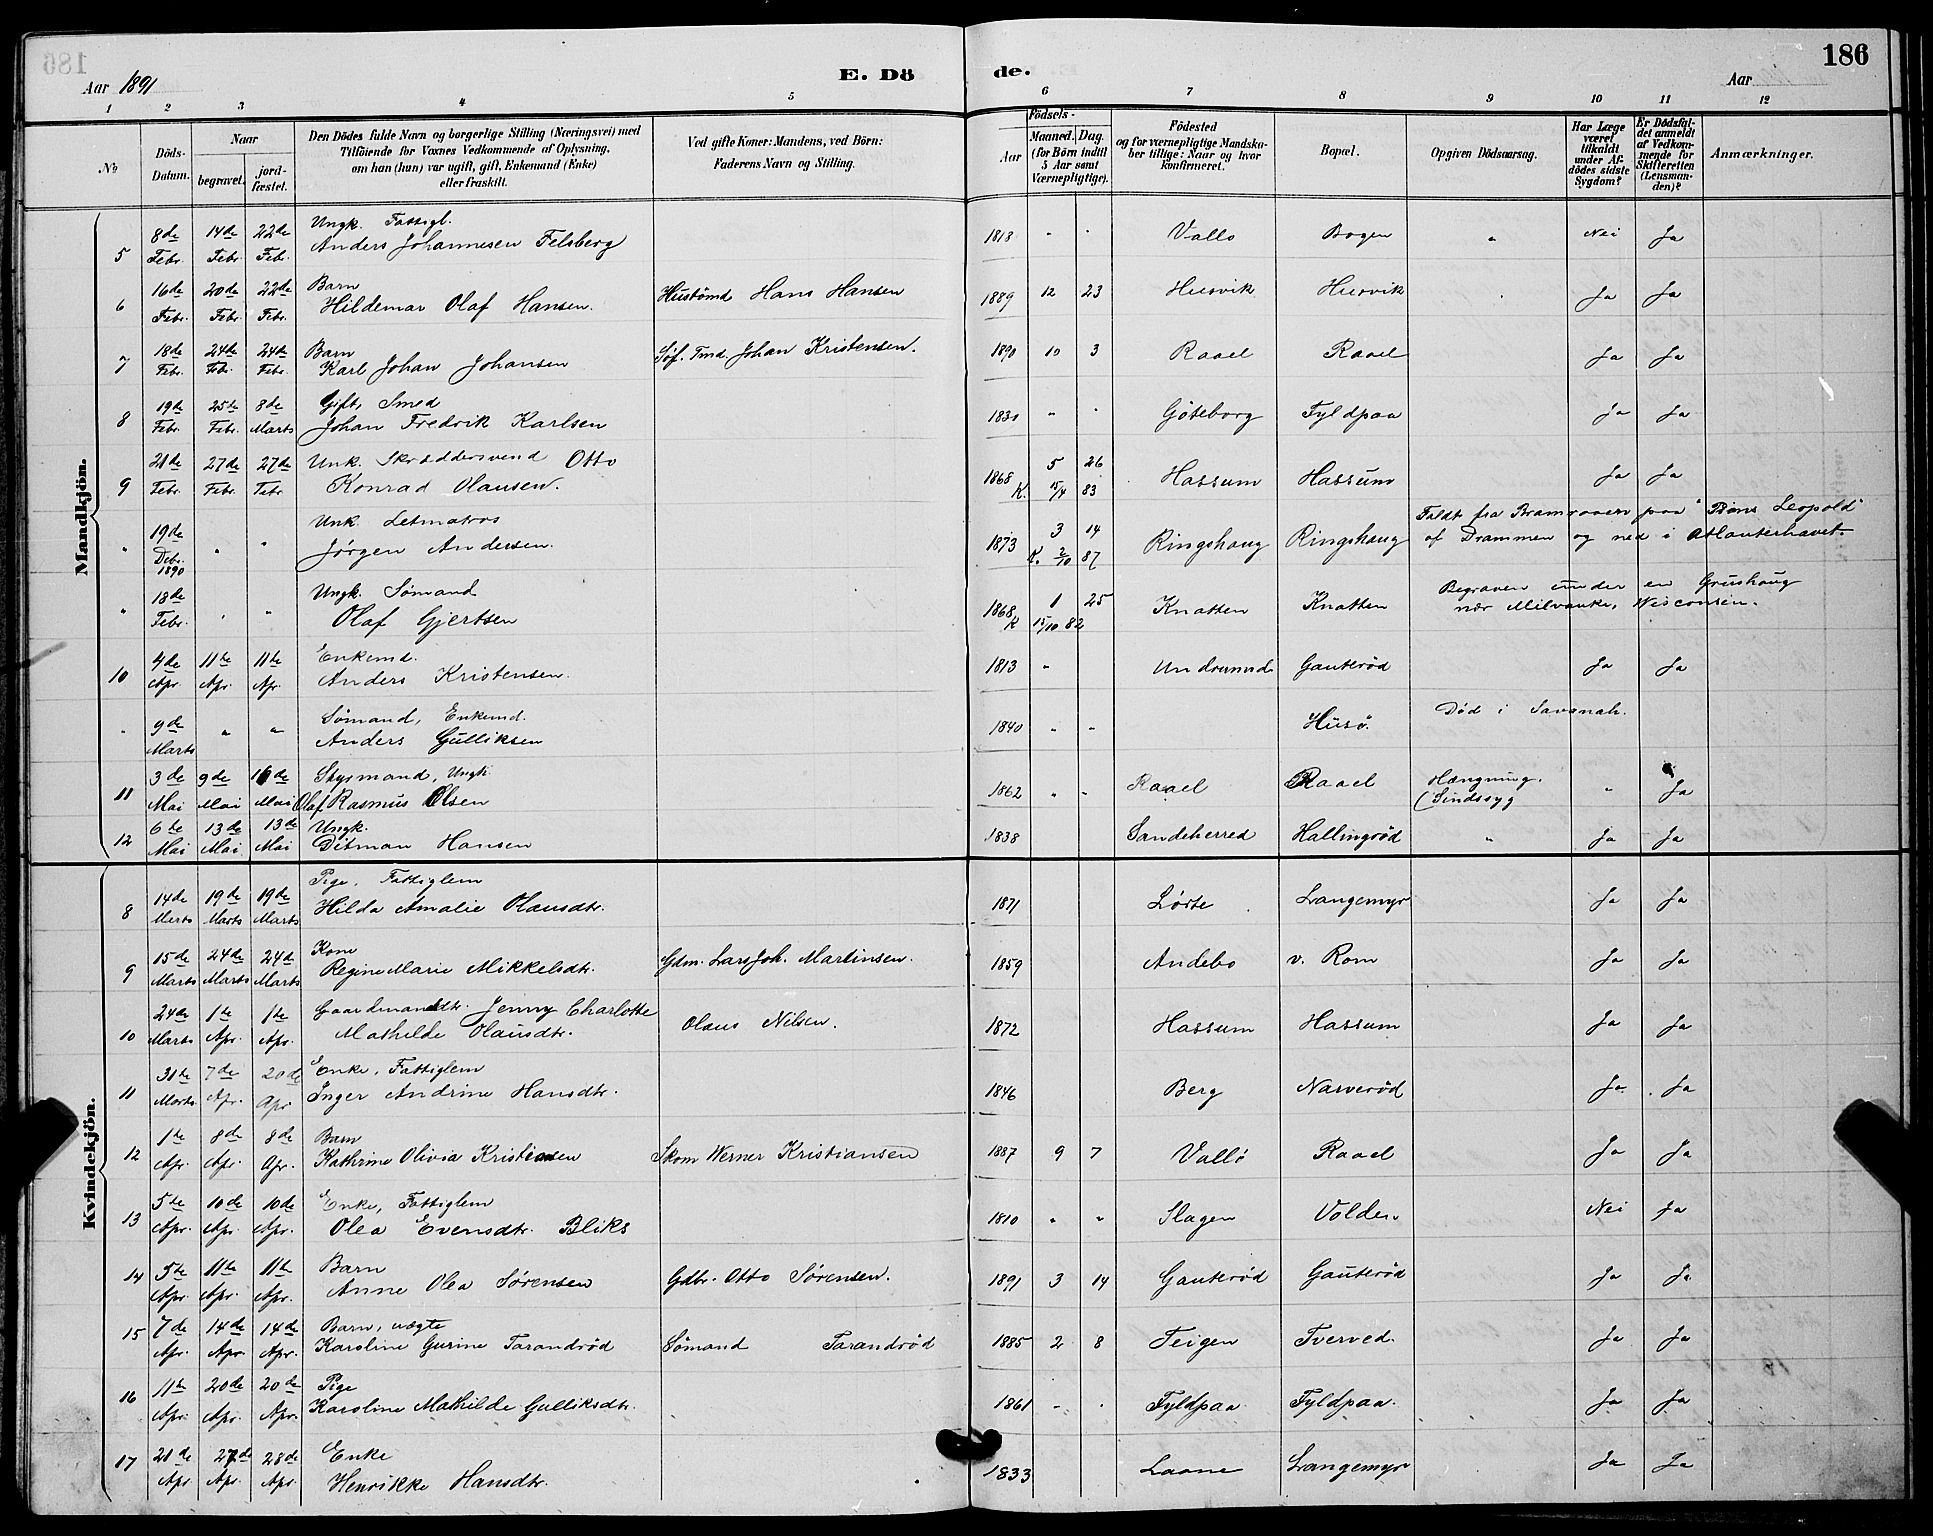 186
Aar 1891
E. Dö de.
Aar
1 2 3 4 5 6 7 8 9 10 11 12
№
Döds-Datum.
Naar
begravet.
jord-fæstet.
Den Dödes fulde Navn og borgerlige Stilling (Næringsvei) med
Tilföiende for Voxnes Vedkommende af Oplysning,
om han (hun) var ugift, gift, Enkemand (Enke)
eller fraskilt.
Ved gifte Koner: Mandens, ved Börn:
Faderens Navn og Stilling.
Födsels-
Aar
Maaned. Dag.
(for Börn indtil
5 Aar samt
Værnepligtige).
Födested
og for værnepligtige Mandska-
ber tillige: Naar og hvor
konfirmeret.
Bopæl.
Opgiven Dödsaarsag.
Har Læge
været
tilkaldt
under Af-
dödes sidste
Sygdom?
Er Dödsfal-
det anmeldt
af Vedkom-
mende for
Skifteretten
(Lensman-
den)?
Anmærkninger.
Mandkjön.
5 8de Febr. 14de Febr. 22de Febr. Ungk. Fattigl.
Anders Johannesen Felsberg 1818 " " Vallo Bogen " Nei Ja
6 16de Febr. 20de Febr. 22de Febr. Barn
Hildemar Olaf Hansen. Hustømd Hans Hansen 1889 12 23 Husvik Husvik Ja Ja
7 18de Febr. 24de Febr. 24de Febr. Barn
Karl Johan Johansen Søf. Tmd. Johan Kristensen. 1890 10 3 Raael Raael Ja Ja
8 19de Febr. 25te Febr. 8de Marts Gift, Smed
Johan Fredrik Karlsen 1830 " " Göteborg Fyldpaa Ja Ja
9 21de Febr. 27de Febr. 27de Febr Unk. Skræddersvend Otto
Konrad Olausen. 1868 5 26 K. 15/4 83 Hassum Hassum Ja Ja
" 19de Debr. 1890 " " Unk. Letmatros
Jørgen Andersen. 1873 3 14 K. 2/10 87 Ringshaug Ringshaug Faldt fra Bramraaen paa "Prins Leopold"
af Drammen og ned i Atlanterhavet.
" 18de Febr. " " Ungk. Sømand
Olaf Gjertsen 1868 1 25 K 15/10 82 Knatten Knatten Begraven under en Grushaug
nær Milvauke, Wisconsin.
10 4de Apr. 11te Apr. 11te Apr. Enkemd.
Anders Kristensen. 1813 " Undrumsd Gauterød Ja Ja
" 9de Marts " " Sømand, Enkemd.
Anders Gulliksen 1840 " " Husö. Död i Savanah.
11 3de Mai 9de Mai 16de Mai Styrmand, Ungk.
Olaf Rasmus Olsen 1862 " " Raael Raael Hængning.
(Sindssyg " Ja
12 6te Mai 13de Mai 13de Mai Ungk.
Ditman Hansen 1838 Sandeherred Hallingrød " Ja Ja
Kvindekjön.
8 14de Marts 19de Marts 19de Marts Pige, Fattiglem
Hilda Amalie Olausdtr. 1871 Lørte Langemyr Ja Ja
9 15de Marts 24de Marts 24de Marts Kone
Regine Marie Mikkelsdtr. Gdm. Lars Joh. Martinsen. 1859 Andebo v. Rom Ja Ja
10 24de Marts 1te Apr. 1te Apr. Gaardmandsdtr. Jenny Charlotte
Mathilde Olausdtr. Olaus Nilsen. 1872 Hassum Hassum Ja Ja
11 31te Marts 7de Apr. 20de Apr Enke, Fattiglem
Inger Andrine Hansdtr. 1846 Berg Narverød Ja Ja
12 1te Apr. 8de Apr. 8de Apr. Barn
Kathrine Olivia Kristiansen Skom Werner Kristiansen 1887 9 7 Vallö Raael Ja Ja
13 5te Apr. 10de Apr. 10de Apr. Enke, Fattiglem
Olea Evensdtr. Bliks 1810 " " Slagen Volden Nei Ja
14 5te Apr. 11te Apr. 11te Apr. Barn
Anne Olea Sørensen Gdbr. Otto Sørensen. 1891 3 14 Gauterød Gauterød Ja Ja
15 7de Apr. 14de Apr. 14de Apr. Barn, uægte
Karoline Gurine Tarandrød Sømand Tarandrød 1885 2 8 Teigen Tverved. Ja Ja
16 11te Apr. 20de Apr. 20de Apr. Pige
Karoline Mathilde Gulliksdtr. 1861 " " Fyldpaa Fyldpaa. Ja Ja
17 21de Apr. 27de Apr. 28de Apr. Enke
Henrikke Hansdtr. 1833 Laane Langemyr Ja Ja